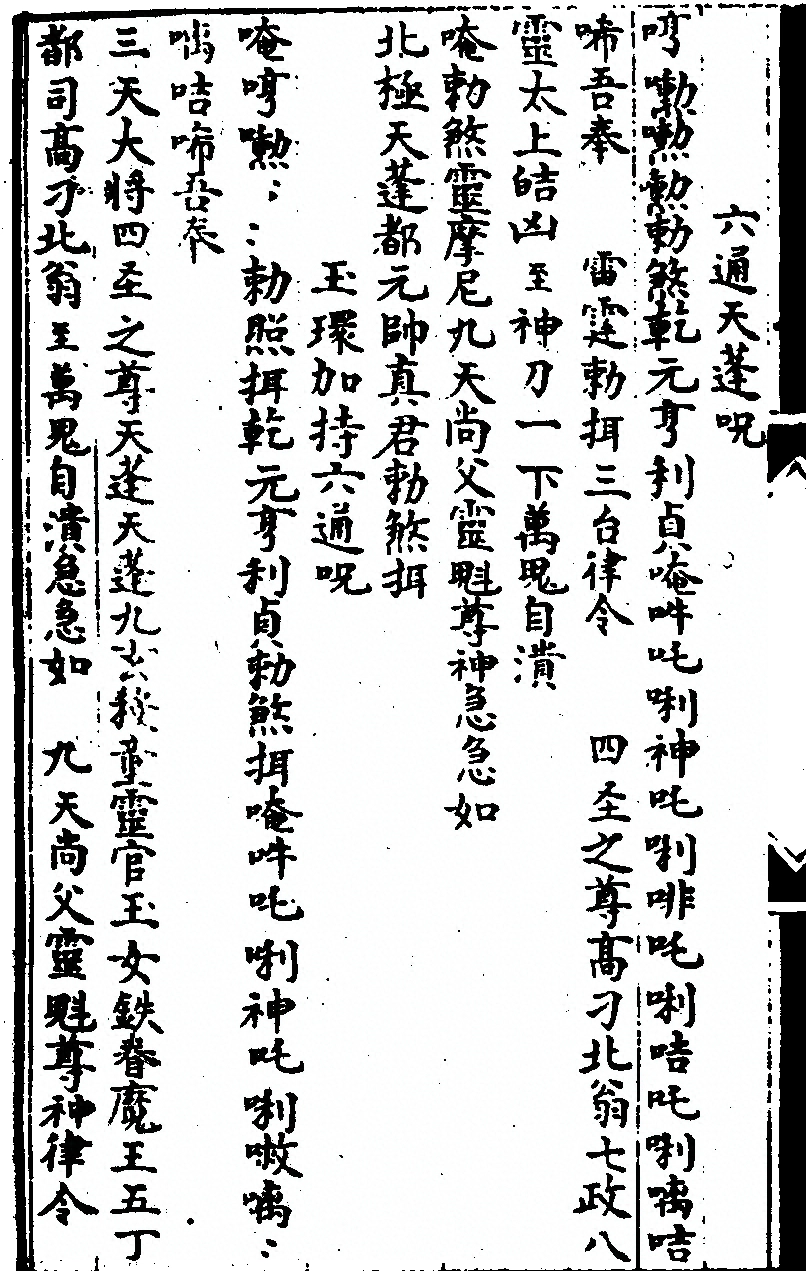 六通天蓬呪
哼嘞嘞勅勅煞乾元亨利貞唵吽吒唎神吒唎啡吒唎咭吒唎㗫咭
唏吾奉　雷霆勅挕三台律令　四圣之尊高刁北翁七政八
靈太上皓凶至神刀一下萬鬼自潰
唵勅煞靈摩尼九天尚父靈魁尊神急急如
北極天蓬都元帥真君勅煞挕
玉環加持六通呪
唵哼嘞：：勅照挕乾元亨利貞勅煞挕唵吽吒唎神吒唎㗫：
咭唏吾奉
三天大將四圣之尊天蓬天蓬九玄殺童靈官玉女鉄眷魔王五丁
都司高刁北翁至萬鬼自潰急急如　九天尚父靈魁尊神律令